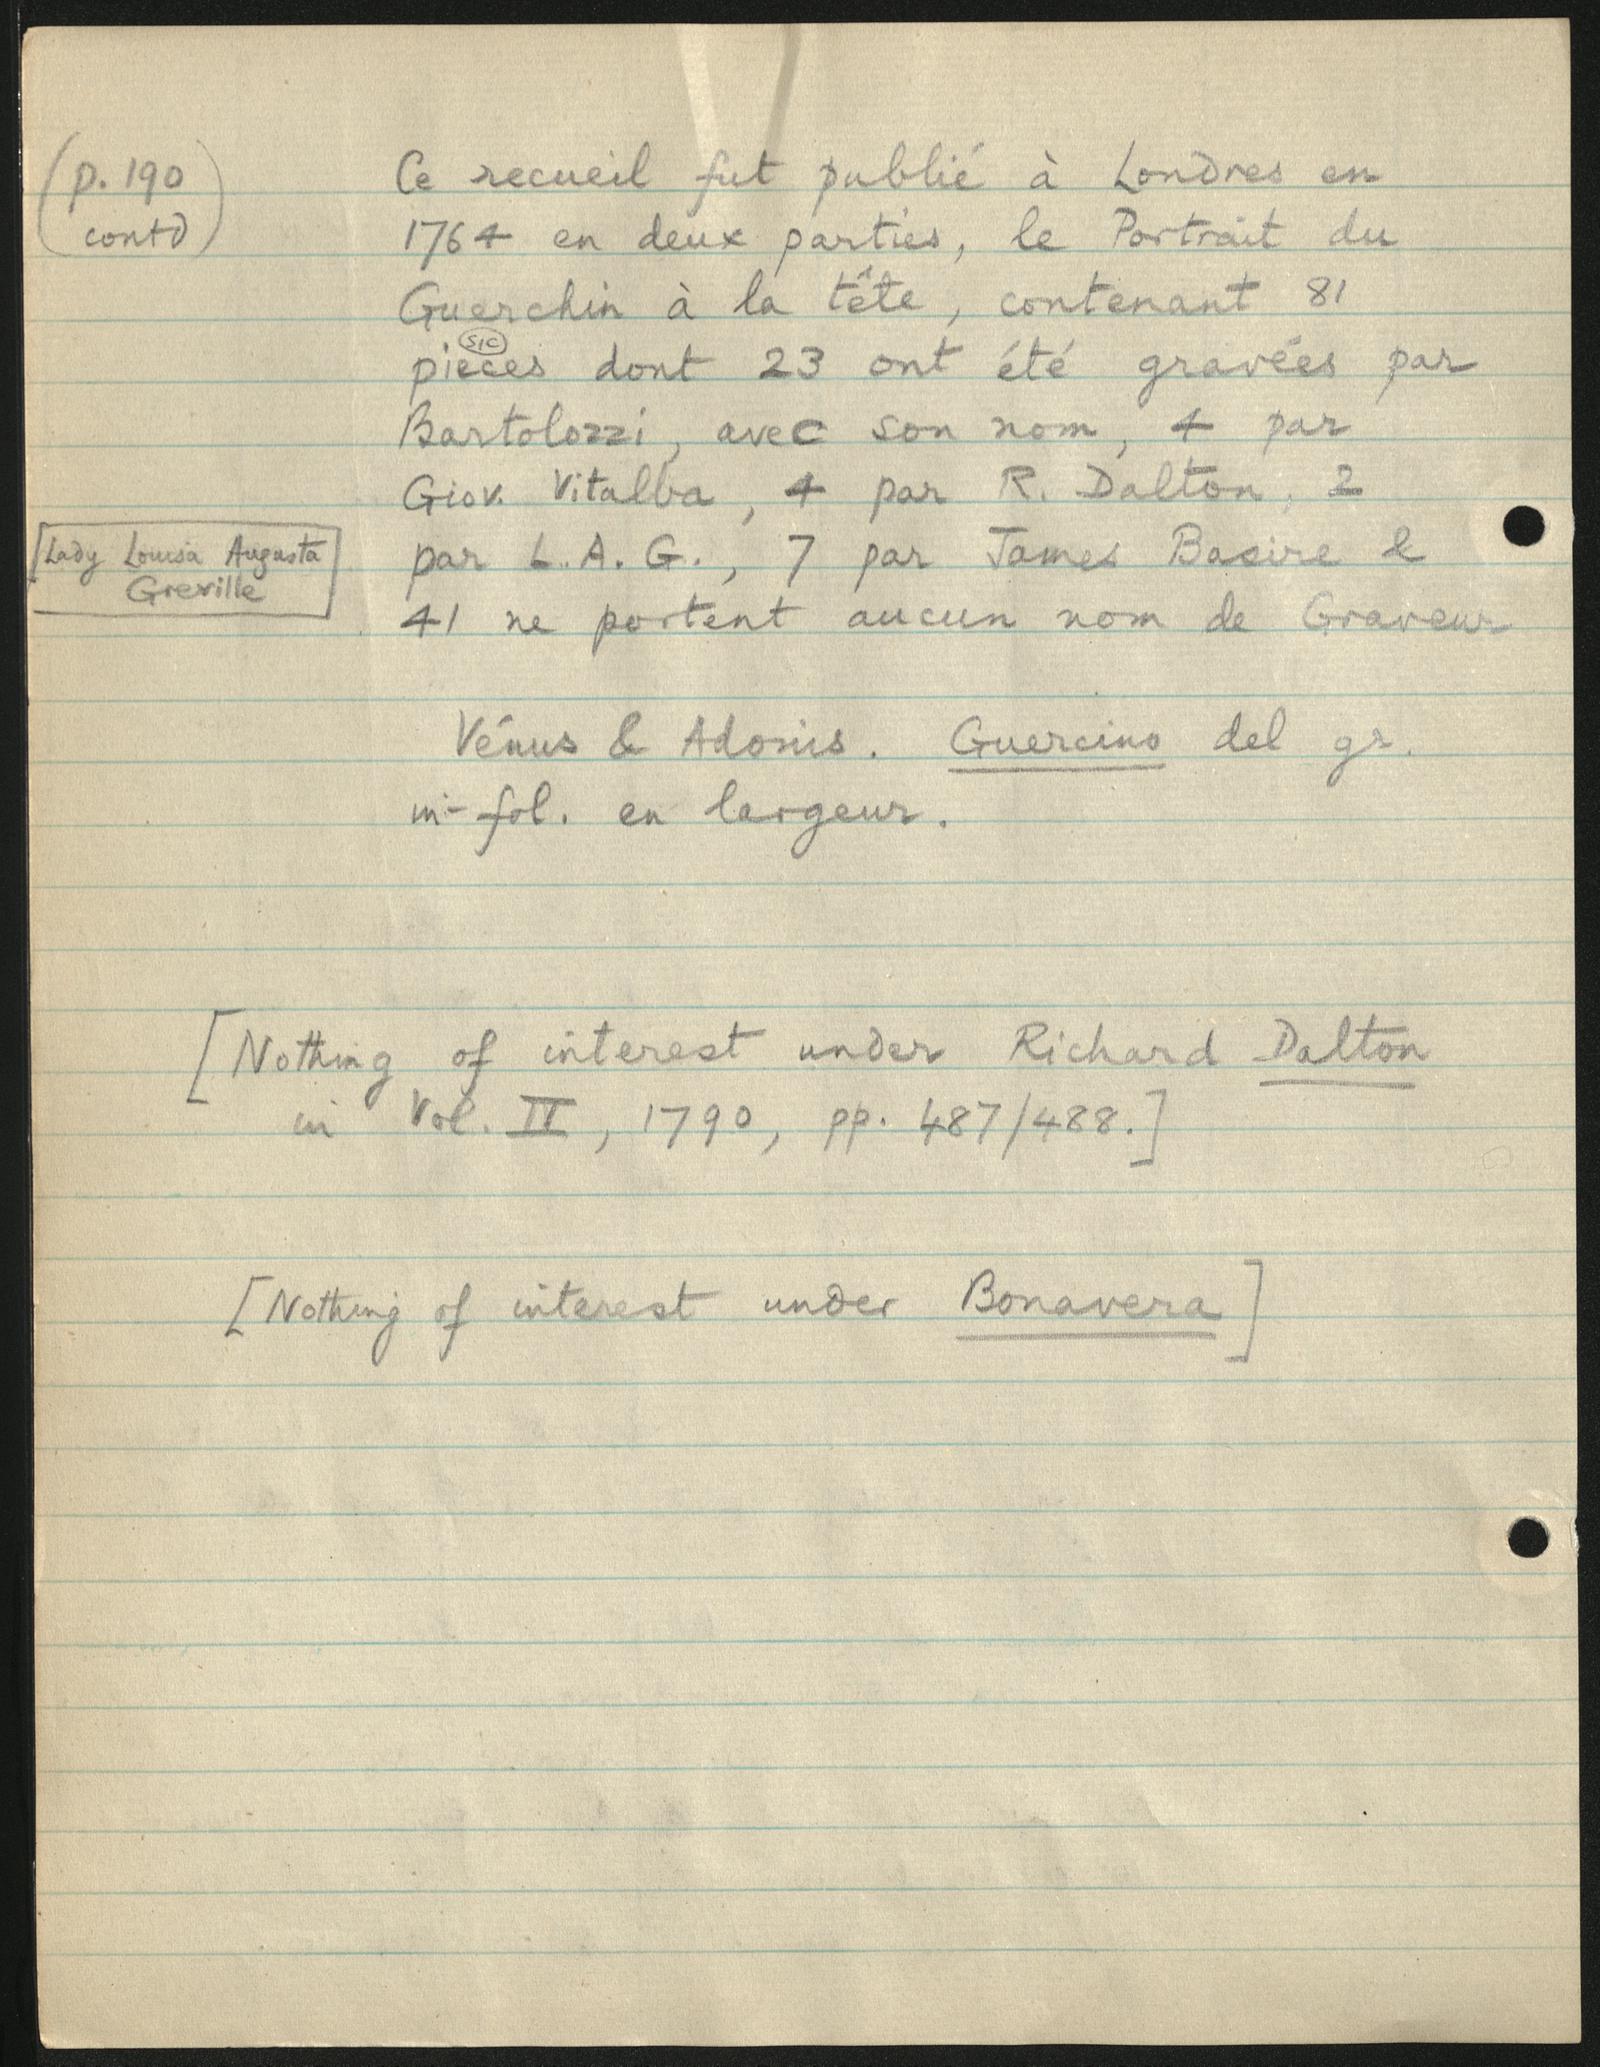 (p. 190
contd)
Ce recueil fut publié à Londres en
1764 en deux parties, le Portrait du
Guerchin à la tête, contenant 81
sic
pieces dont 23 ont été gravées par
Bartolozzi, avec son nom, 4 par
Giov. Vitalba, 4 par R. Dalton, 2
[Lady Louisa Augusta
Greville]
par L. A. G., 7 par James Basire &
41 ne portent aucun nom de Graveur
Vénus & Adonis. Guercino del gr.
in-fol. en largeur.
[Nothing of interest under Richard Dalton
in Vol. IV, 1790, pp. 487/488.]
[Nothing of interest under Bonavera]